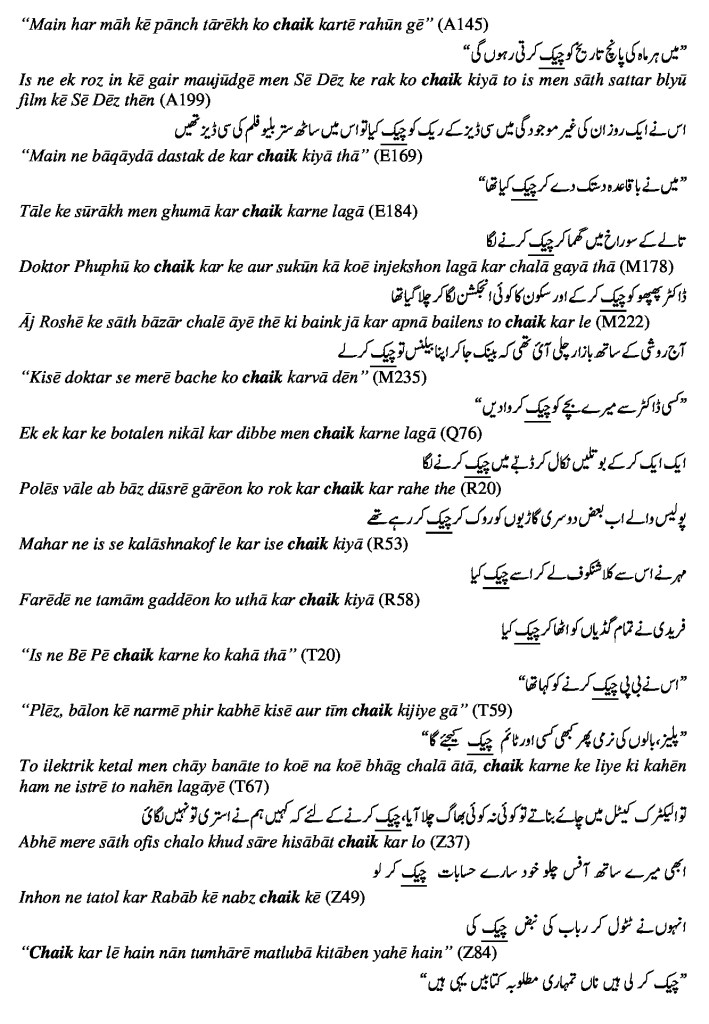 “Main har māh kē pānch tārēkh ko chaik kartē rahūn gē” (A145)
”میں ہر ماہ کی پانچ تاریخ کو چیک کرتی رہوں گی“
Is ne ek roz in kē gair maujūdgē men Sē Dēz ke rak ko chaik kiyā to is men sāth sattar blyū
film kē Sē Dēz thēn (A199)
اس نے ایک روز ان کی غیر موجودگی میں سی ڈیز کے ریک کو چیک کیا تو اس میں ساٹھ ستر بلیو فلم کی سی ڈیز تھیں
“Main ne bāqāydā dastak de kar chaik kiyā thā” (E169)
”میں نے باقاعدہ دستک دے کر چیک کیا تھا“
Tāle ke sūrākh men ghumā kar chaik karne lagā (E184)
تالے کے سوراخ میں گھما کر چیک کرنے لگا
Doktor Phuphū ko chaik kar ke aur sukūn kā koē injekshon lagā kar chalā gayā thā (M178)
ڈاکٹر پھپھو کو چیک کر کے اور سکون کا کوئی انجکشن لگا کر چلا گیا تھا
Āj Roshē ke sāth bāzār chalē āyē thē ki baink jā kar apnā bailens to chaik kar le (M222)
آج روشی کے ساتھ بازار چلی آئی تھی کہ بینک جا کر اپنا بیلنس تو چیک کر لے
“Kisē doktar se merē bache ko chaik karvā dēn” (M235)
”کسی ڈاکٹر سے میرے بچے کو چیک کروا دیں“
Ek ek kar ke botalen nikāl kar dibbe men chaik karne lagā (Q76)
ایک ایک کر کے بوتلیں نکال کر ڈبے میں چیک کرنے لگا
Polēs vāle ab bāz dūsrē gārēon ko rok kar chaik kar rahe the (R20)
پولیس والے اب بعض دوسری گاڑیوں کو روک کر چیک کر رہے تھے
Mahar ne is se kalāshnakof le kar ise chaik kiyā (R53)
مہر نے اس سے کلاشنکوف لے کر اسے چیک کیا
Farēdē ne tamām gaddēon ko uthā kar chaik kiyā (R58)
فریدی نے تمام گڈیاں کو اٹھا کر چیک کیا
“Is ne Bē Pē chaik karne ko kahā thā” (T20)
”اس نے بی پی چیک کرنے کو کہا تھا“
“Plēz, bālon kē narmē phir kabhē kisē aur tīm chaik kijiye gā” (T59)
”پلیز، بالوں کی نرمی پھر کبھی کسی اور ٹائم چیک کیجئے گا“
To ilektrik ketal men chāy banāte to koē na koē bhāg chalā ātā, chaik karne ke liye ki kahēn
ham ne istrē to nahēn lagāyē (T67)
تو الیکٹرک کیٹل میں چائے بناتے تو کوئی نہ کوئی بھاگ چلا آیا، چیک کرنے کے لئے کہ کہیں ہم نے استری تو نہیں لگائی
Abhē mere sāth ofis chalo khud sāre hisābāt chaik kar lo (Z37)
ابھی میرے ساتھ آفس چلو خود سارے حسابات چیک کر لو
Inhon ne tatol kar Rabāb kē nabz chaik kē (Z49)
انہوں نے ٹٹول کر رباب کی نبض چیک کی
“Chaik kar lē hain nān tumhārē matlubā kitāben yahē hain” (Z84)
”چیک کر لی ہیں ناں تمہاری مطلوبہ کتابیں یہی ہیں“